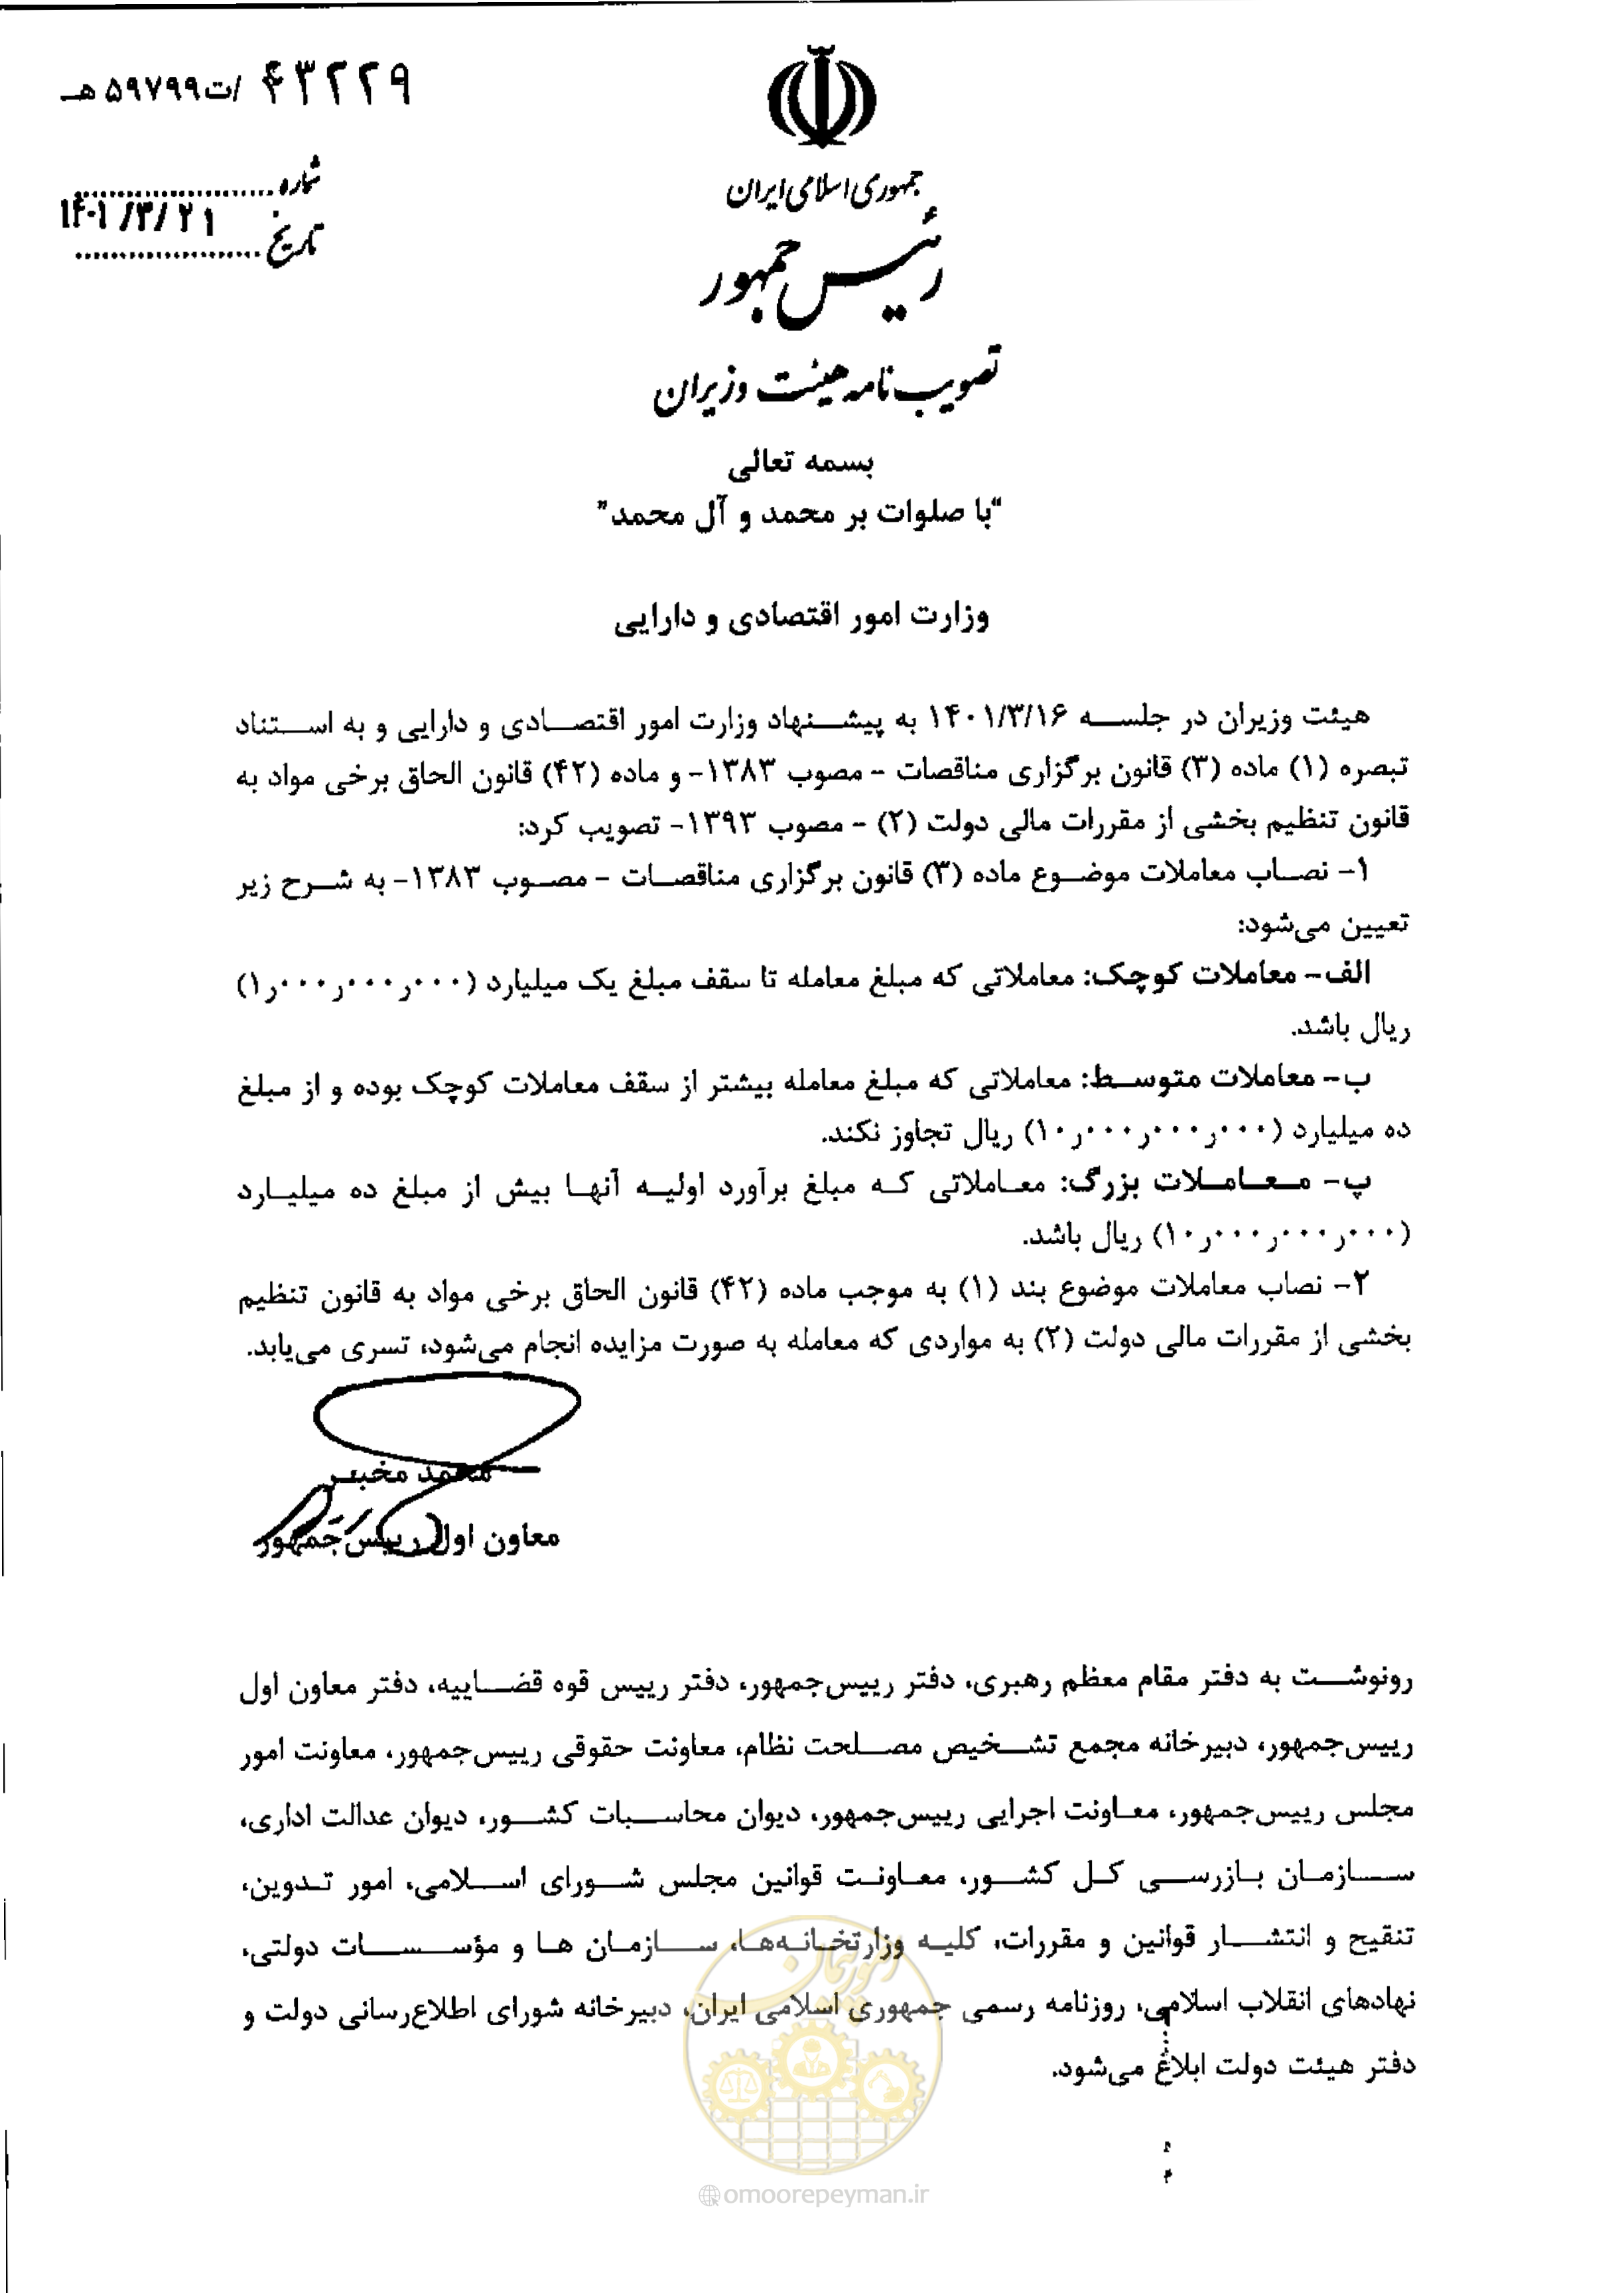 ۴۳۲۲۹ /ت۵۹۷۹۹ هـ
شماره
تاریخ ۱۴۰۱/۳/۲۱
جمهوری اسلامی ایران
رئیس جمهور
تصویب نامه هیئت وزیران
بسمه تعالی
"با صلوات بر محمد و آل محمد"
وزارت امور اقتصادی و دارایی
هیئت وزیران در جلسه ۱۴۰۱/۳/۱۶ به پیشنهاد وزارت امور اقتصادی و دارایی و به استناد
تبصره (۱) ماده (۳) قانون برگزاری مناقصات - مصوب ۱۳۸۳- و ماده (۴۲) قانون الحاق برخی مواد به
قانون تنظیم بخشی از مقررات مالی دولت (۲) - مصوب ۱۳۹۳- تصویب کرد:
۱- نصاب معاملات موضوع ماده (۳) قانون برگزاری مناقصات - مصوب ۱۳۸۳- به شرح زیر
تعیین می‌شود:
الف- معاملات کوچک: معاملاتی که مبلغ معامله تا سقف مبلغ یک میلیارد (۱ر۰۰۰ر۰۰۰ر۰۰۰)
ریال باشد.
ب- معاملات متوسط: معاملاتی که مبلغ معامله بیشتر از سقف معاملات کوچک بوده و از مبلغ
ده میلیارد (۱۰ر۰۰۰ر۰۰۰ر۰۰۰) ریال تجاوز نکند.
پ- معاملات بزرگ: معاملاتی که مبلغ برآورد اولیه آنها بیش از مبلغ ده میلیارد
(۱۰ر۰۰۰ر۰۰۰ر۰۰۰) ریال باشد.
۲- نصاب معاملات موضوع بند (۱) به موجب ماده (۴۲) قانون الحاق برخی مواد به قانون تنظیم
بخشی از مقررات مالی دولت (۲) به مواردی که معامله به صورت مزایده انجام می‌شود، تسری می‌یابد.
محمد مخبر
معاون اول رییس‌جمهور
رونوشت به دفتر مقام معظم رهبری، دفتر رییس‌جمهور، دفتر رییس قوه قضاییه، دفتر معاون اول
رییس‌جمهور، دبیرخانه مجمع تشخیص مصلحت نظام، معاونت حقوقی رییس‌جمهور، معاونت امور
مجلس رییس‌جمهور، معاونت اجرایی رییس‌جمهور، دیوان محاسبات کشور، دیوان عدالت اداری،
سازمان بازرسی کل کشور، معاونت قوانین مجلس شورای اسلامی، امور تدوین،
تنقیح و انتشار قوانین و مقررات، کلیه وزارتخانه‌ها، سازمان ها و مؤسسات دولتی،
نهادهای انقلاب اسلامی، روزنامه رسمی جمهوری اسلامی ایران، دبیرخانه شورای اطلاع‌رسانی دولت و
دفتر هیئت دولت ابلاغ می‌شود.
امور پیمان
omoorepeyman.ir